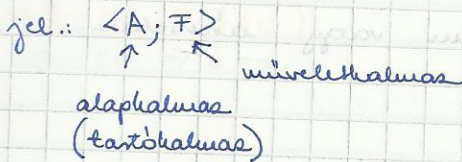 jel.: <A; F>
művelethalmaz
alaphalmaz
(tartóhalmaz)